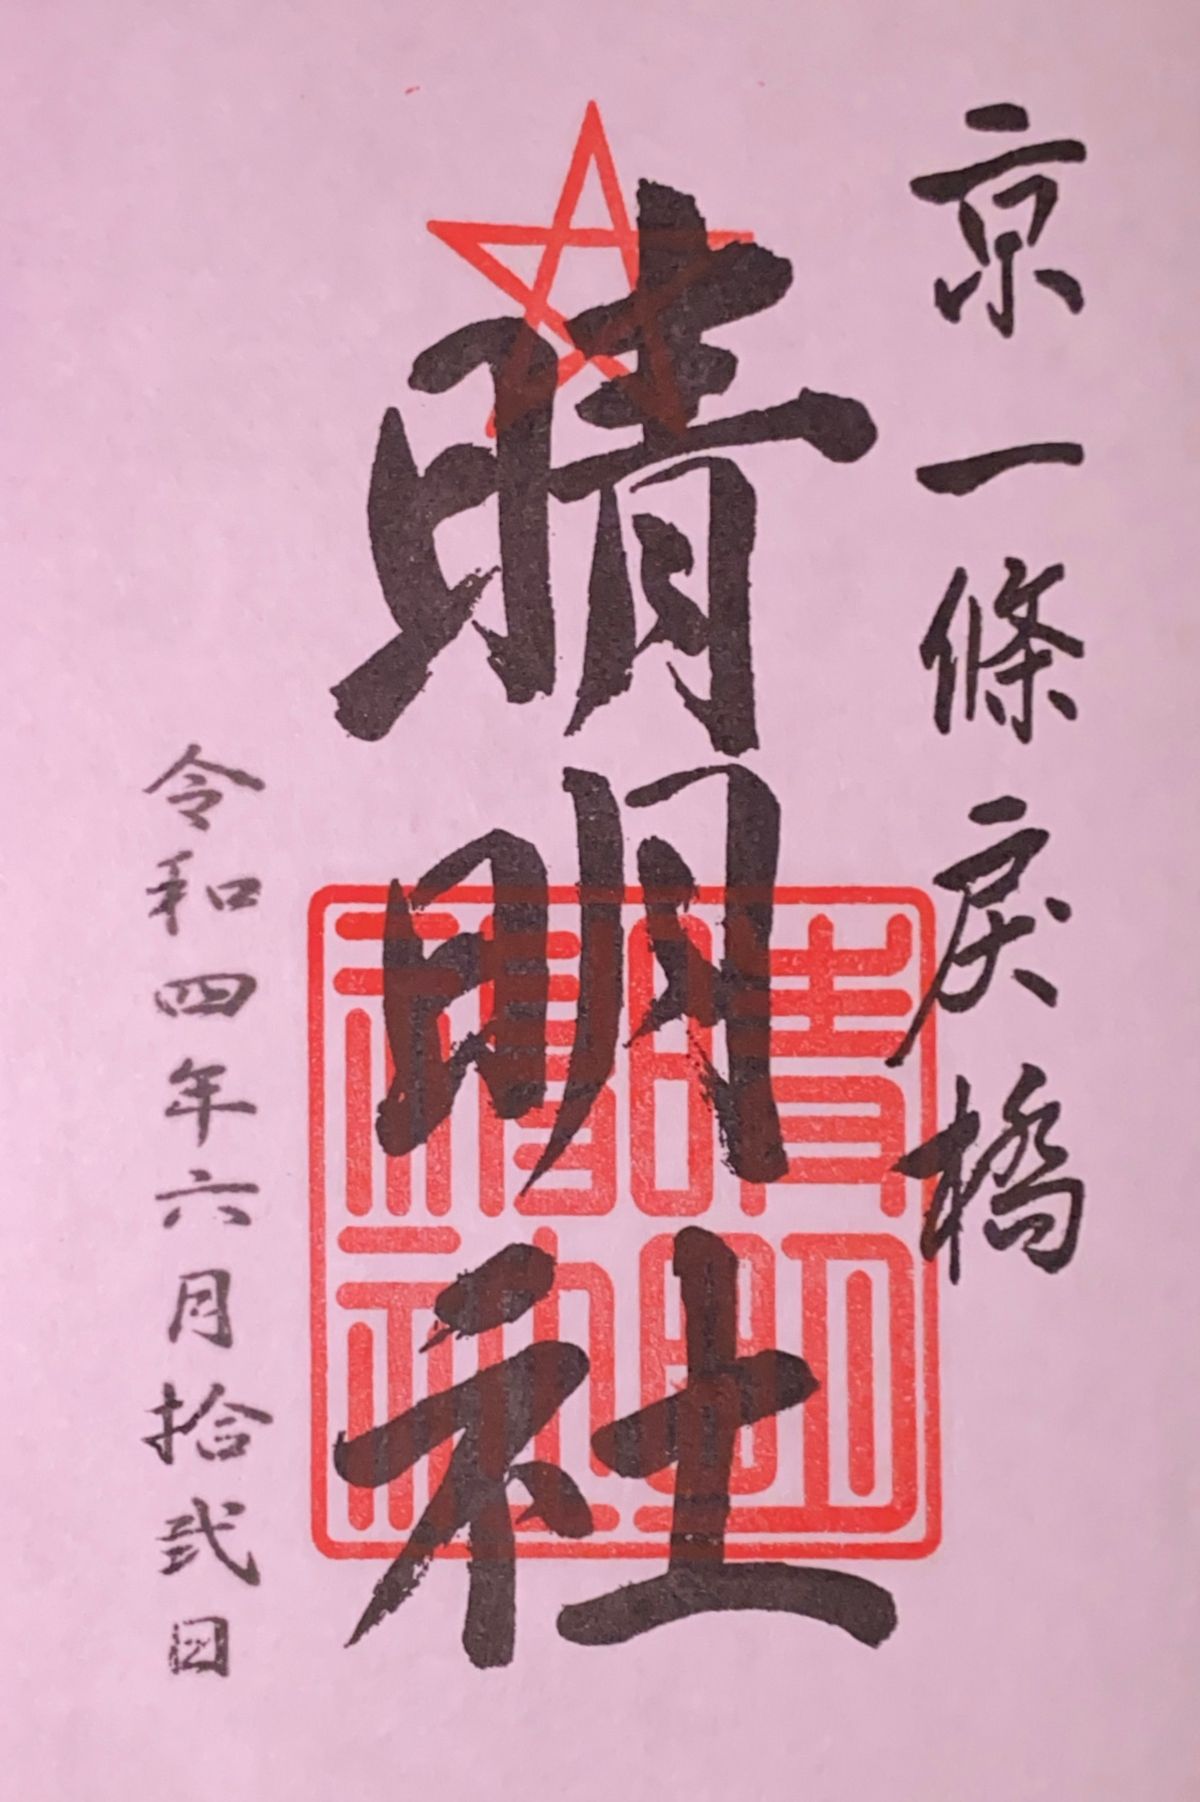 京一條戻橋
晴明社
晴明
神社
令和四年六月拾弐日